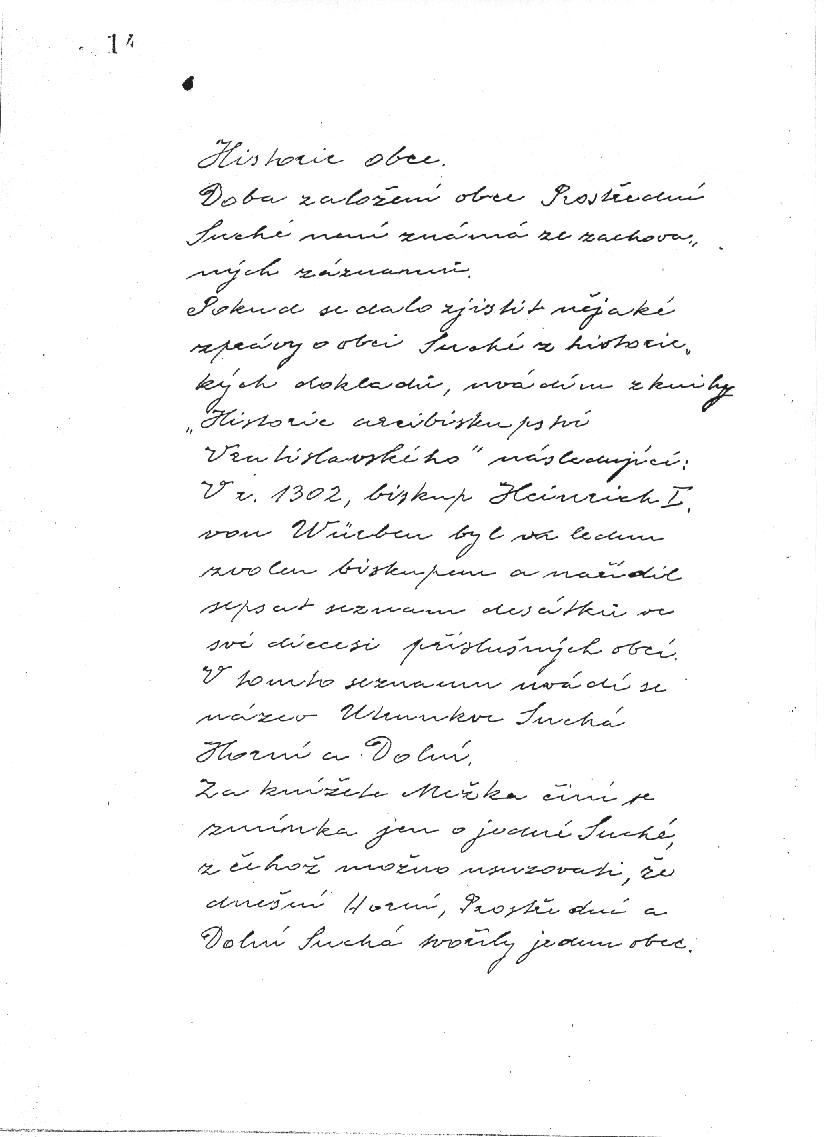 14
Historie obce.
Doba založení obce Prostřední
Suché není známá ze zachova„
ných záznamů.
Pokud se dalo zjistit nějaké
zprávy o obci Suché z historic„
kých dokladů, uvádím z knihy
„Historie arcibiskupství
Vratislavského" následující:
V r. 1302, biskup Heinrich I.
von Würben byl
zvolen biskupem a nařídil
sepsat seznam desátků ve
své diecesi příslušných obcí.
V tomto seznamu uvádí se
název Suchá
Horní a Dolní.
Za knížete Mežka činí se
zmínka jen o jedné Suché,
z čehož možno usuzovati, že
dnešní Horní, Prostřední a
Dolní Suchá tvořily jednu obec.